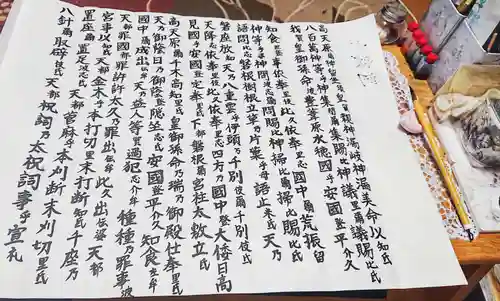 高天原爾神留坐須皇親神漏岐神漏美命以知氐
八百萬神等乎神集閉爾集賜比神議里爾議賜比氐
我賀皇御孫命波豊葦原水穂國乎安國登平介久
知食世登事依奉里伎此久依奉里志國中爾荒振留
神等乎婆神問婆志爾問賜比神掃比爾掃賜比氐
語問比志磐根樹根立草乃片葉乎母語止米氐天乃
磐座放知天乃八重雲乎伊頭乃千別伎爾千別伎氐
天降志依奉里伎此久依奉里志四方乃國中登大倭日高
見國乎安國登定奉里氐下都磐根爾宮柱太敷立氐
高天原爾千木高知里氐皇御孫命乃瑞乃御殿仕奉里氐
天乃御陰日乃御陰登隠坐志氐安國登平介久知食佐牟
國中爾成出伝牟天乃益人等賀過犯志介牟種種乃罪事波
天都罪國都罪許許太久乃罪出伝牟此久出伝婆天都
宮事以知氐天都金木乎本打切里末打断知氐千座乃
置座爾置足波志氐天都菅麻乎本刈断末刈切里氐
八針爾取辟伎氐天都祝詞乃太祝詞事乎宣礼